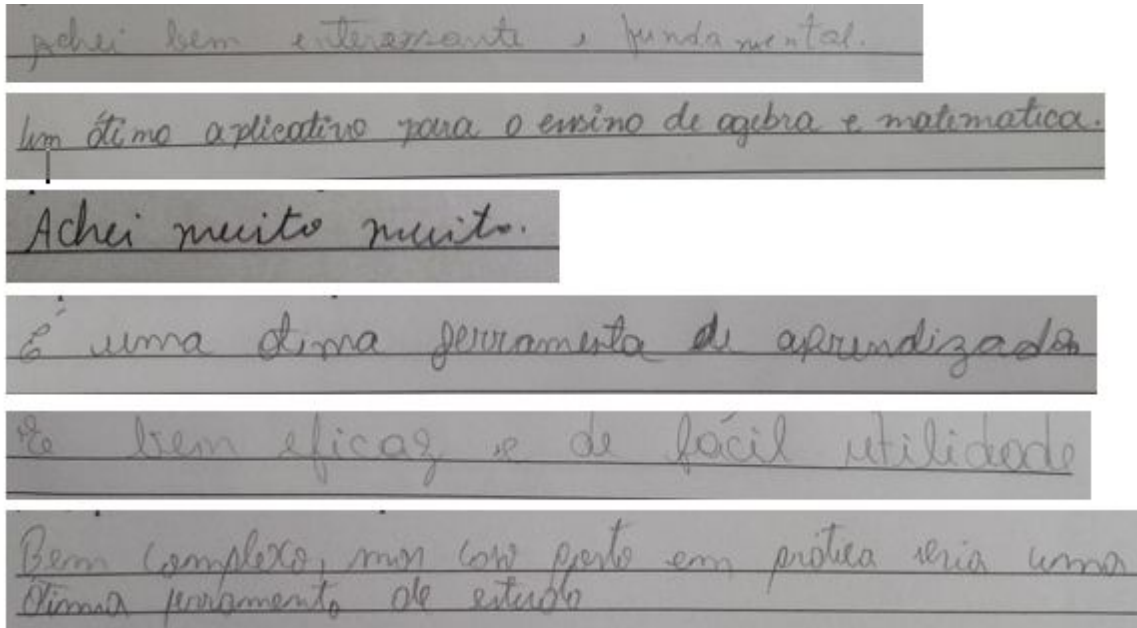 Achei bem enteressante e fundamental.
Um ótimo aplicativo para o ensino de agebra e matematica.
Achei muito muito.
É uma otima ferramenta de aprendizado
é bem eficaz e de fácil utilidade
Bem complexo, mas caso posto em prática seria uma
ótima ferramenta de estudo